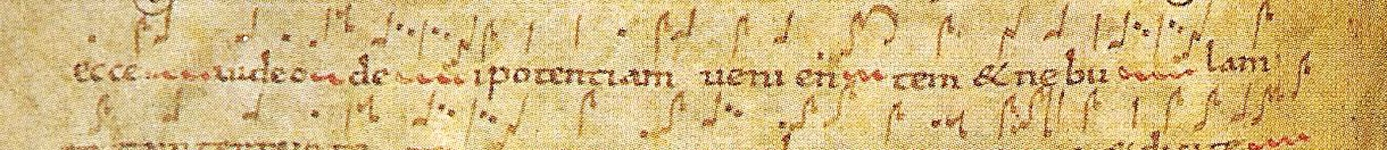 ecce uideo de i potentiam ueni en tem & nę bu lam
& dicite